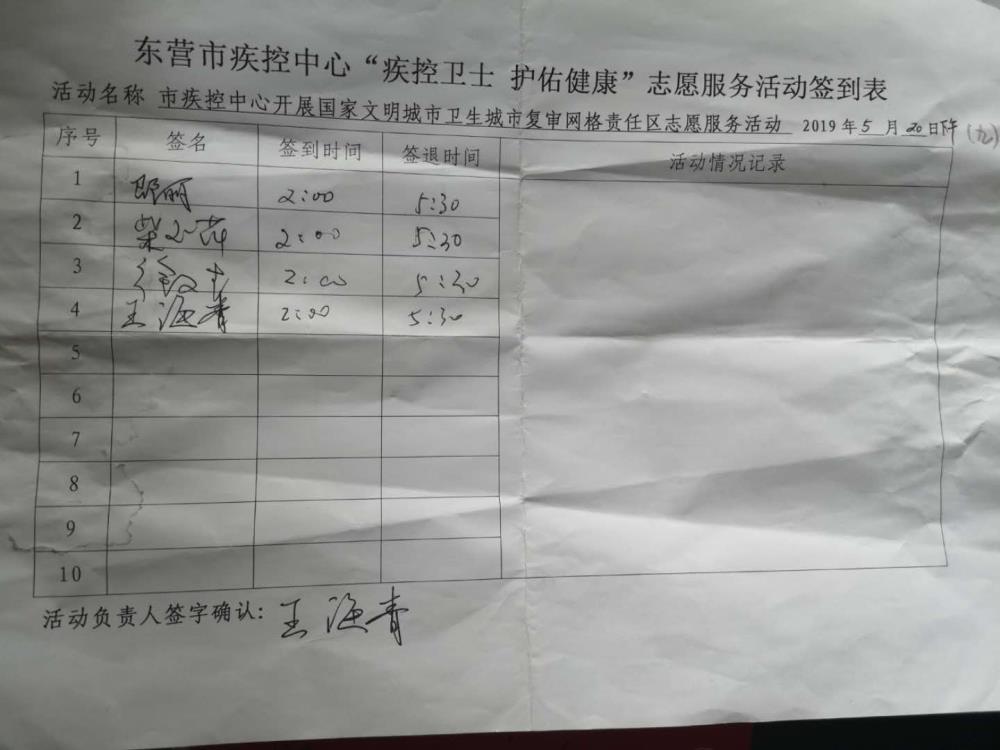 东营市疾控中心“疾控卫士 护佑健康”志愿服务活动签到表
活动名称 市疾控中心开展国家文明城市卫生城市复审网格责任区志愿服务活动 2019年5月20日下午（九）
序号 签名 签到时间 签退时间 活动情况记录
1 2:00 5:30
2 2:00 5:30
3 2:00 5:30
4 王海青 2:00 5:30
5
6
7
8
9
10
活动负责人签字确认：王海青